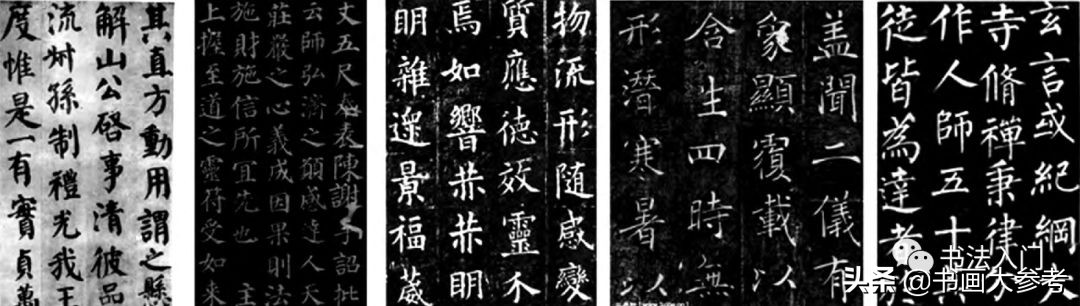 其直方動用謂之懸
解山公啓事清彼品
流叔孫制禮光我王
度惟是一有實貞萬
丈五尺表陳謝手詔批
云師弘濟之願感達人天
莊嚴之心義成因果則法
施財施信所宜先也 主
上握至道之靈符受如來
物流形隨感變
質應德效靈不
焉如響赫赫明
明雜遝景福葳
盖聞二儀有
象顯覆載以
含生四時無
形潛寒暑以
玄言或紀綱
寺脩禪秉律
作人師五十
徒皆為達者
书法入门
头条 @书画大参考